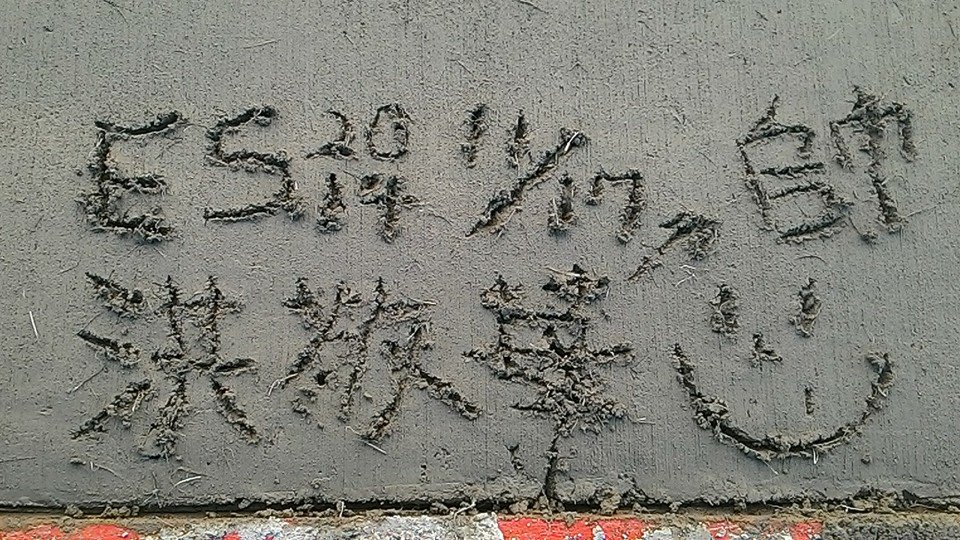 ES 2014 11/17, 帥
洪敬華